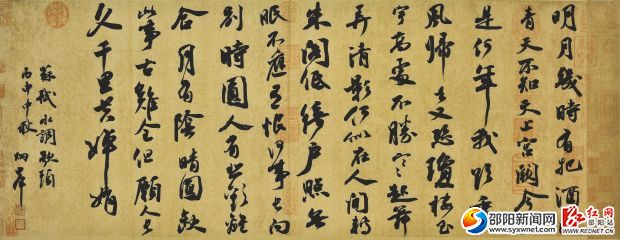 明月幾時有把酒
青天不知天上宮闕今
是何年我欲乘
風歸去又恐瓊樓玉
宇高處不勝寒起舞
弄清影何似在人間轉
朱閣低綺戶照無
眠不應有恨何事長向
別時圓人有悲歡離
合月有陰晴圓缺
此事古難全但願人長
久千里共嬋娟
蘇軾水調歌頭
丙申中秋
邵阳新闻网
www.syxwnet.com
红网
邵阳站
WWW.REDNET.CN